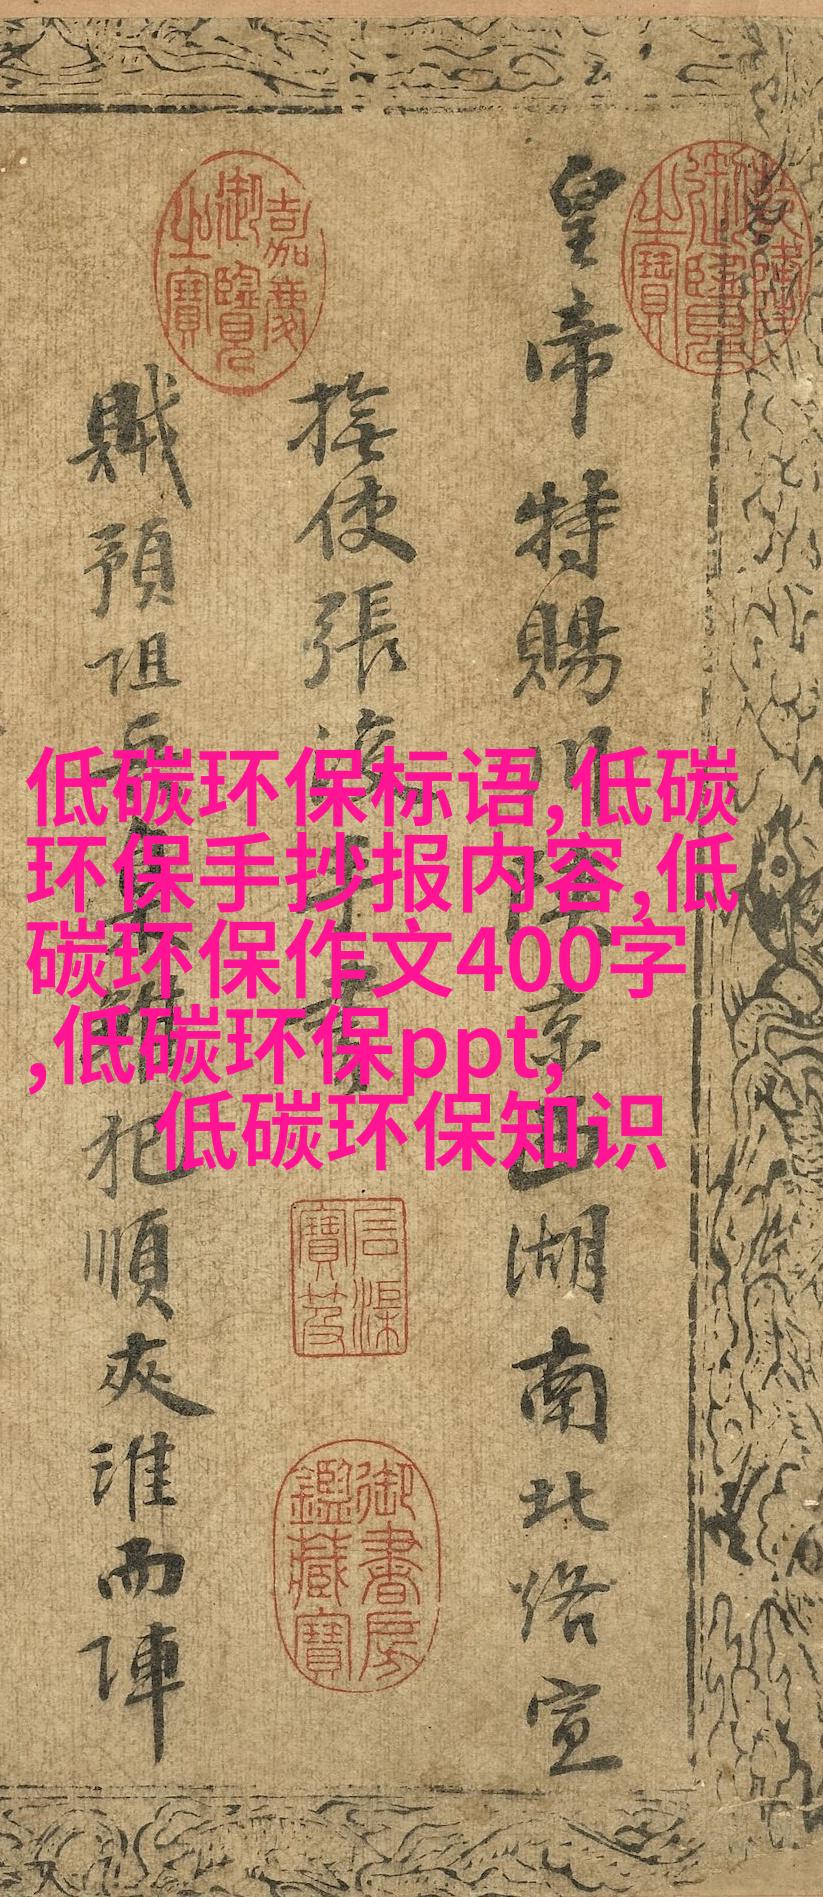 皇帝特賜川陝京西湖南北路宣
撫使張浚手書
賊豫阻兵
犯順夾淮而陣
嘉慶御覽之寶
御書房鑑藏寶
低碳环保标语,低碳
环保手抄报内容,低
碳环保作文400字
,低碳环保ppt,
低碳环保知识